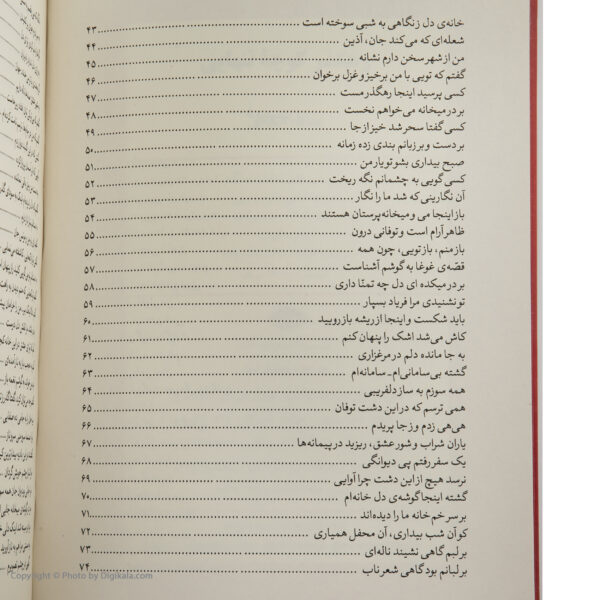 خانه‌ی دل ز نگاهی به شبی سوخته است ۴۳
شعله‌ای که می‌کند جان، آذین ۴۴
من از شهر سخن دارم نشانه ۴۵
گفتم که تویی با من برخیز و غزل برخوان ۴۶
کسی پرسید اینجا رهگذر مست ۴۷
بر در میخانه می‌خواهم نخست ۴۸
کسی گفتا سحر شد خیز از جا ۴۹
بر دست و بر زبانم بندی زده زمانه ۵۰
صبح بیداری بشو تو یار من ۵۱
کسی گویی به چشمانم نگه ریخت ۵۲
آن نگارینی که شد ما را نگار ۵۳
باز اینجا می و میخانه پرستان هستند ۵۴
ظاهر آرام است و توفانی درون ۵۵
باز منم، باز تویی، چون همه ۵۶
قصّه‌ی غوغا به گوشم آشناست ۵۷
بر در میکده ای دل چه تمنّا داری ۵۸
تو نشنیدی مرا فریاد بسپار ۵۹
باید شکست و اینجا از ریشه باز رویید ۶۰
کاش می‌شد اشک را پنهان کنم ۶۱
به جا مانده دلم در مرغزاری ۶۲
گشته بی‌سامانی‌ام ـ سامانه‌ام ۶۳
همه سوزم به ساز دلفریبی ۶۴
همی ترسم که در این دشت توفان ۶۵
هی‌هی زدم و ز جا پریدم ۶۶
یاران شراب و شور عشق، ریزید در پیمانه‌ها ۶۷
یک سفر رفتم پی دیوانگی ۶۸
نرسد هیچ از این دشت چرا آوایی ۶۹
گشته اینجا گوشه‌ی دل خانه‌ام ۷۰
بر سر خم خانه ما را دیده‌اند ۷۱
کو آن شب بیداری، آن محفل همیاری ۷۲
بر لبم گاهی نشیند ناله‌ای ۷۳
بر لبانم بود گاهی شعر ناب ۷۴
Copyright © Photo by Digikala.com